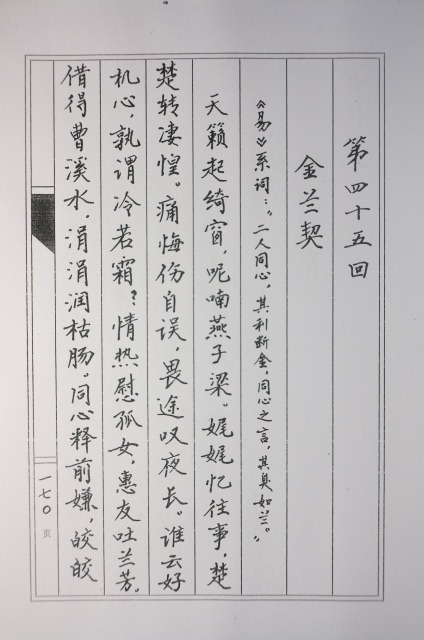 第四十五回
金兰契
《易》系词：“二人同心，其利断金，同心之言，其臭如兰。”
天籁起绮窗，呢喃燕子梁。娓娓忆往事，楚
楚转凄惶。痛悔伤自误，畏途叹夜长。谁云好
机心，孰谓冷若霜？情热慰孤女，惠友吐兰芳。
借得曹溪水，涓涓润枯肠。同心释前嫌，皎皎
一七〇页